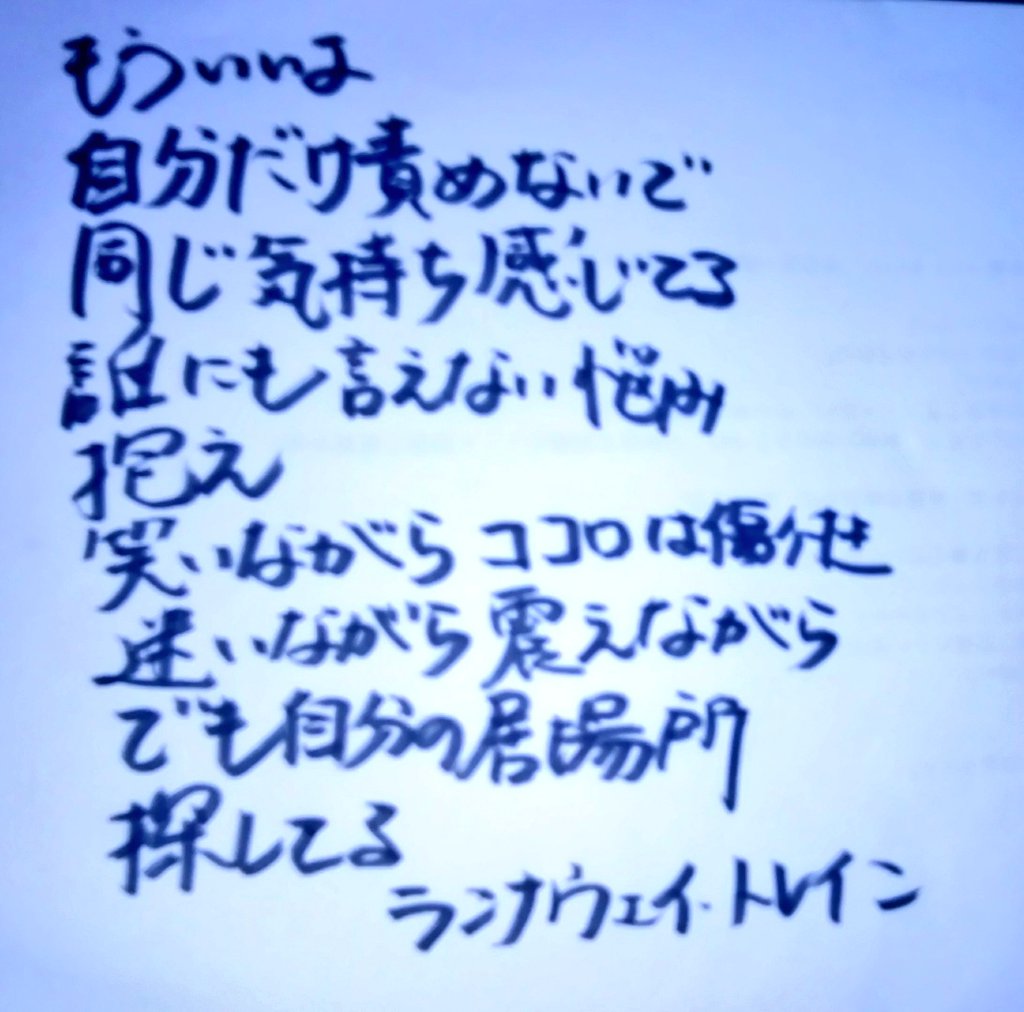 もういいよ
自分だけ責めないで
同じ気持ち感じてる
誰にも言えない悩み
抱え
笑いながら ココロは傷つけ
迷いながら 震えながら
でも自分の居場所
探してる
ランナウェイ・トレイン